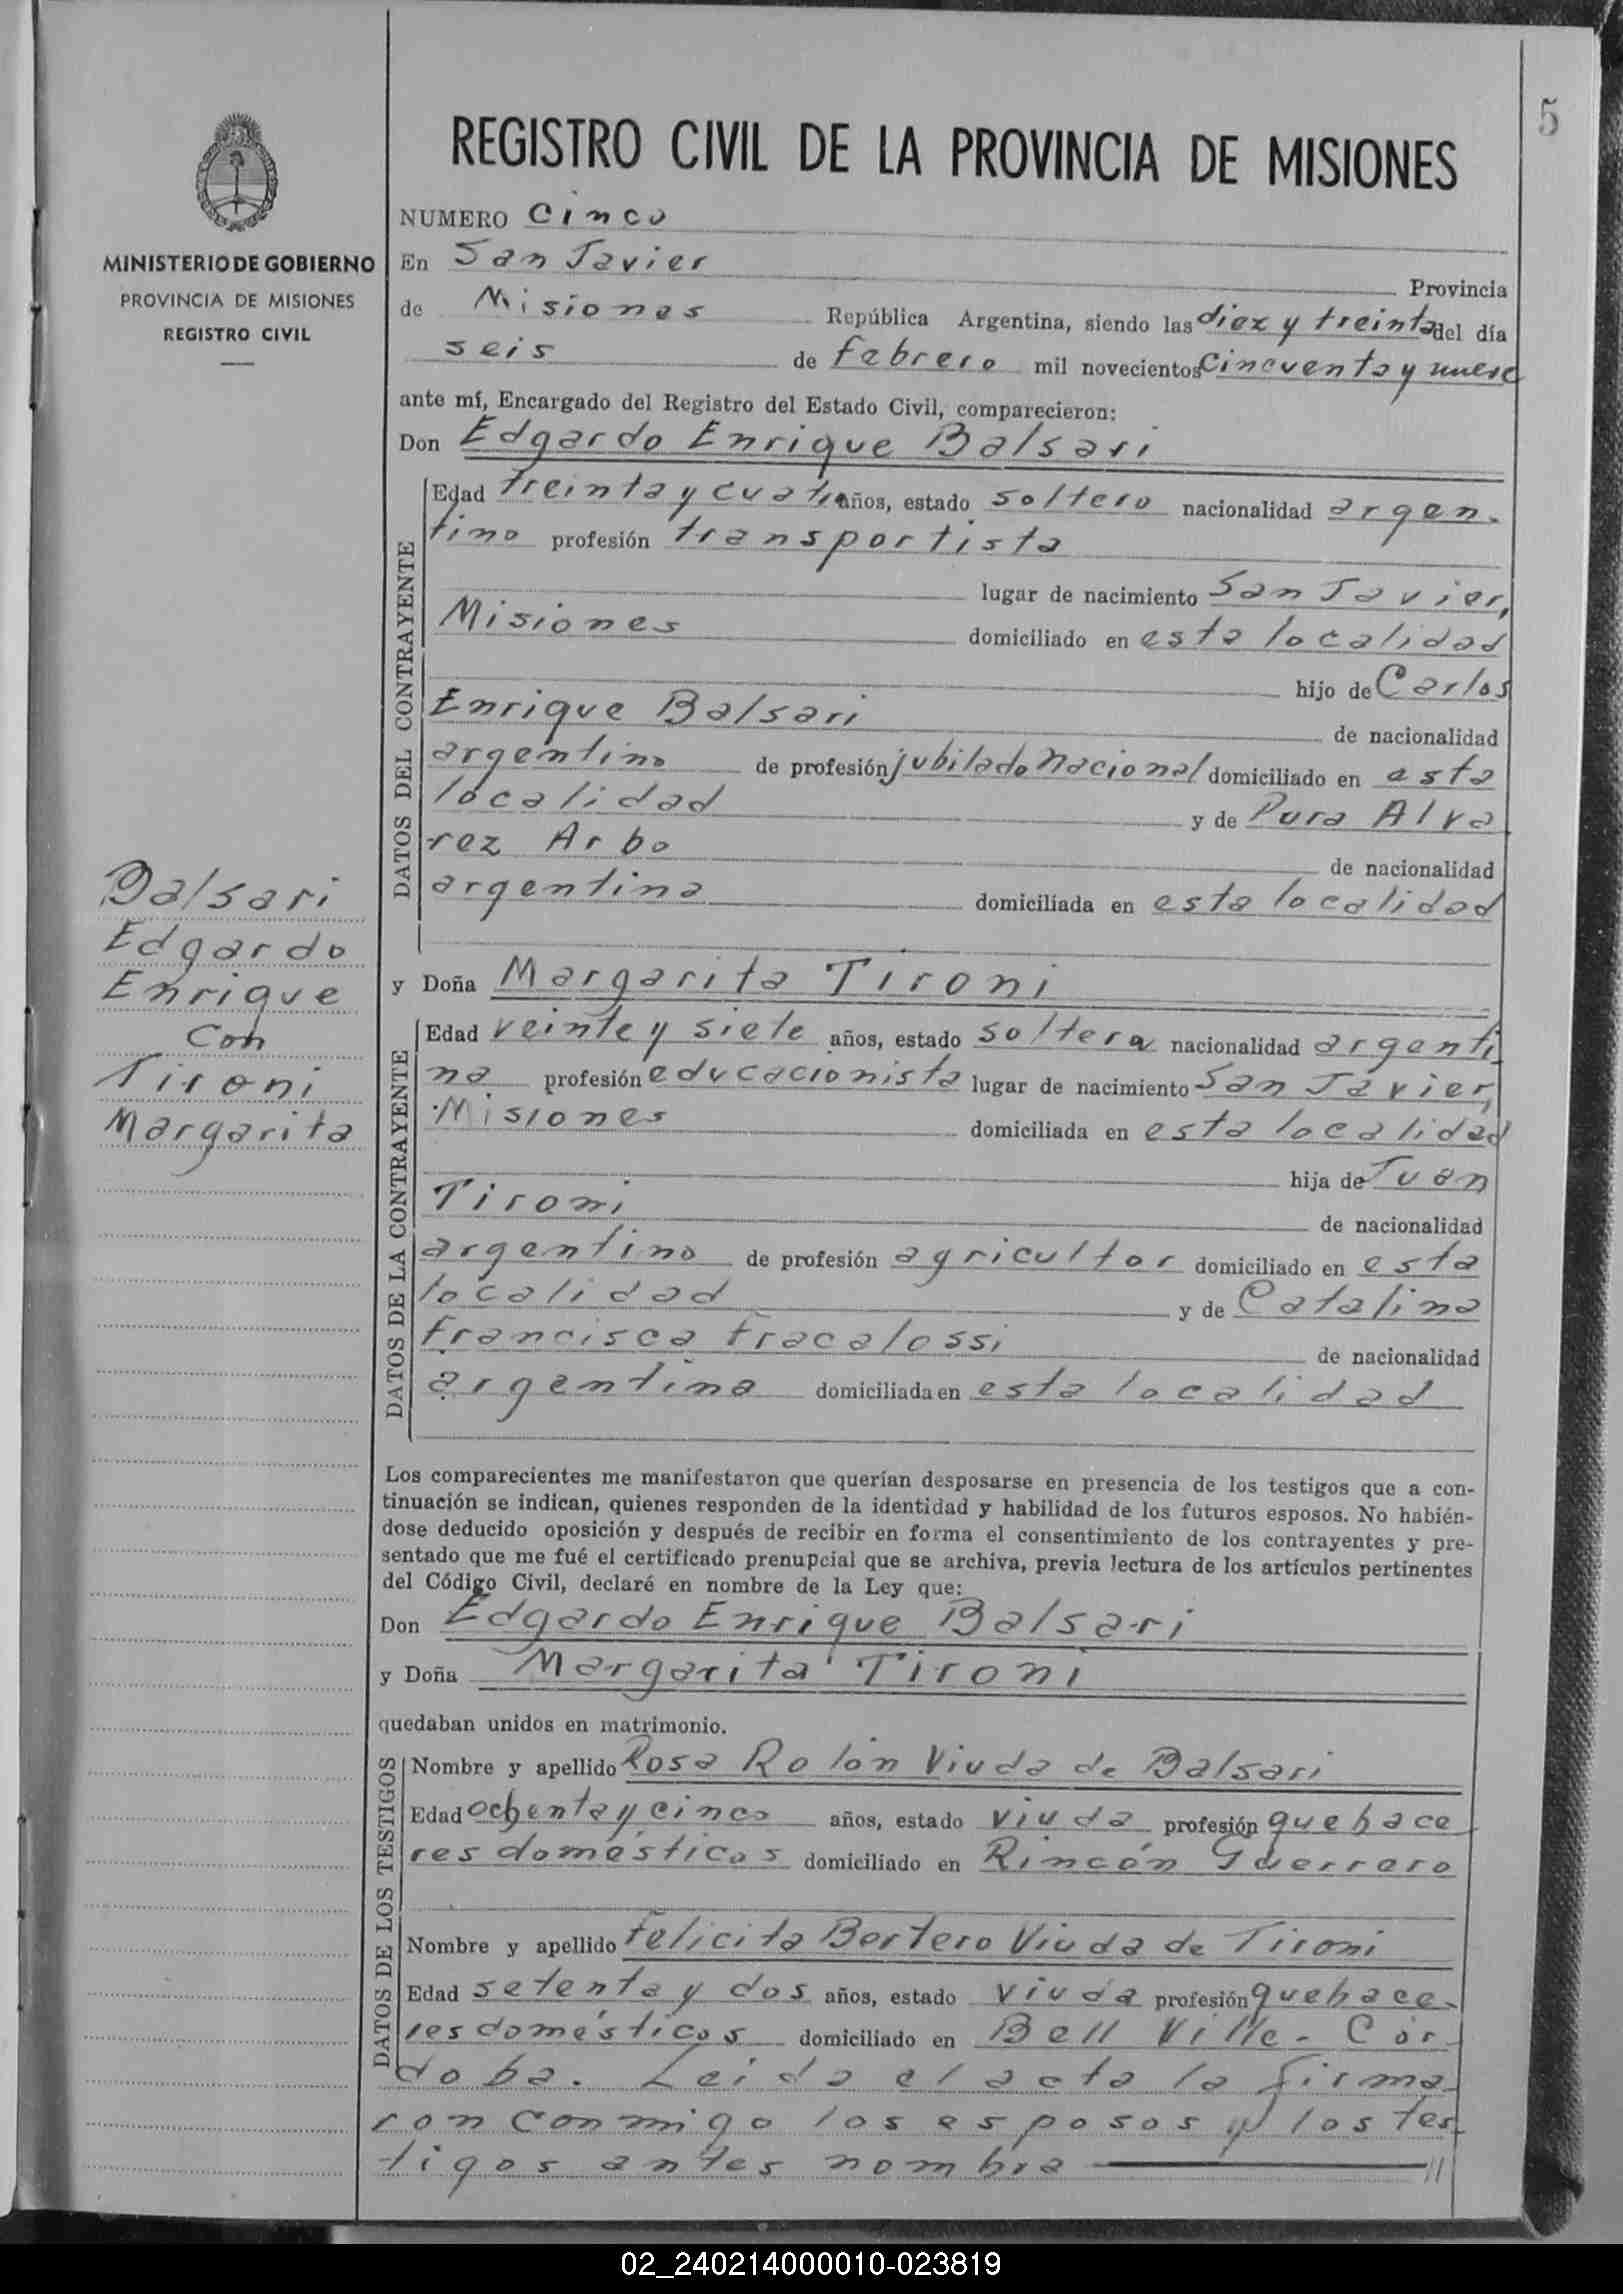 5
REGISTRO CIVIL DE LA PROVINCIA DE MISIONES
MINISTERIO DE GOBIERNO
PROVINCIA DE MISIONES
REGISTRO CIVIL
NUMERO Cinco
En San Javier Provincia
de Misiones República Argentina, siendo las diez y treinta del día
seis de febrero mil novecientos cincuenta y nueve
ante mí, Encargado del Registro del Estado Civil, comparecieron:
Don Edgardo Enrique Balsari
DATOS DEL CONTRAYENTE
Edad treinta y cuatro años, estado soltero nacionalidad argen-
tino profesión transportista
lugar de nacimiento San Javier,
Misiones domiciliado en esta localidad
hijo de Carlos
Enrique Balsari de nacionalidad
argentino de profesión jubilado Nacional domiciliado en esta
localidad y de Pura Alva
rez Arbo de nacionalidad
argentina domiciliada en esta localidad
Balsari
Edgardo
Enrique
Con
Tironi
Margarita
y Doña Margarita Tironi
DATOS DE LA CONTRAYENTE
Edad veinte y siete años, estado soltera nacionalidad argenti
na profesión educacionista lugar de nacimiento San Javier,
Misiones domiciliada en esta localidad
hija de Juan
Tironi de nacionalidad
argentino de profesión agricultor domiciliado en esta
localidad y de Catalina
Francisca Fracalossi de nacionalidad
argentina domiciliada en esta localidad
Los comparecientes me manifestaron que querían desposarse en presencia de los testigos que a con-
tinuación se indican, quienes responden de la identidad y habilidad de los futuros esposos. No habién-
dose deducido oposición y después de recibir en forma el consentimiento de los contrayentes y pre-
sentado que me fué el certificado prenupcial que se archiva, previa lectura de los artículos pertinentes
del Código Civil, declaré en nombre de la Ley que:
Don Edgardo Enrique Balsari
y Doña Margarita Tironi
quedaban unidos en matrimonio.
DATOS DE LOS TESTIGOS
Nombre y apellido Rosa Rolón Viuda de Balsari
Edad ochenta y cinco años, estado viuda profesión quehace
res domésticos domiciliado en Rincón Guerrero
Nombre y apellido Felicita Bertero Viuda de Tironi
Edad setenta y dos años, estado viuda profesión quehace-
res domésticos domiciliado en Bell Ville - Cór-
doba. Leida el acta la firma-
ron conmigo los esposos y los tes-
tigos antes nombra
02_240214000010-023819